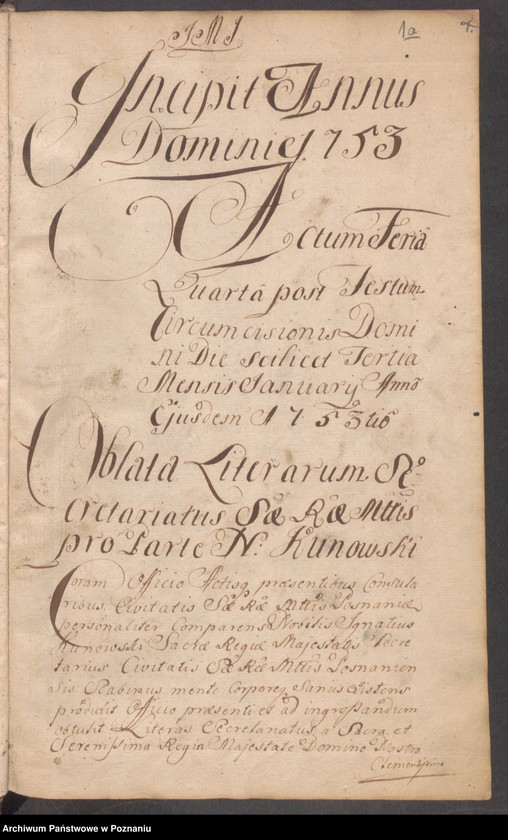 JMJ
1a
Incipit Annus
Domini 1753
Actum Feria
Quarta post Festum
Circumcisionis Domi
ni Die scilicet Tertia
Mensis Januarij Anno
Ejusdem 1753tio
Oblata Literarum Se
cretariatus Sae Rae Mttis
pro Parte N. Kunowski
Coram Officio Actisq praesentibus Consula
ribus Civitatis Sae Rae Mttis Posnaniae
personaliter Comparens Nobilis Ignatius
Kunowski Sacrae Regiae Majestatis Secre
tarius Civitatis Sae Rae Mttis Posnanien
sis Scabinus mente Corporeq Sanus Sistens
produxit Officio praesenti et ad ingrossandum
obtulit Literas Secretariatus a Sacra et
Serenissima Regia Majestate Domino Nostro
Clementissimo
Archiwum Państwowe w Poznaniu